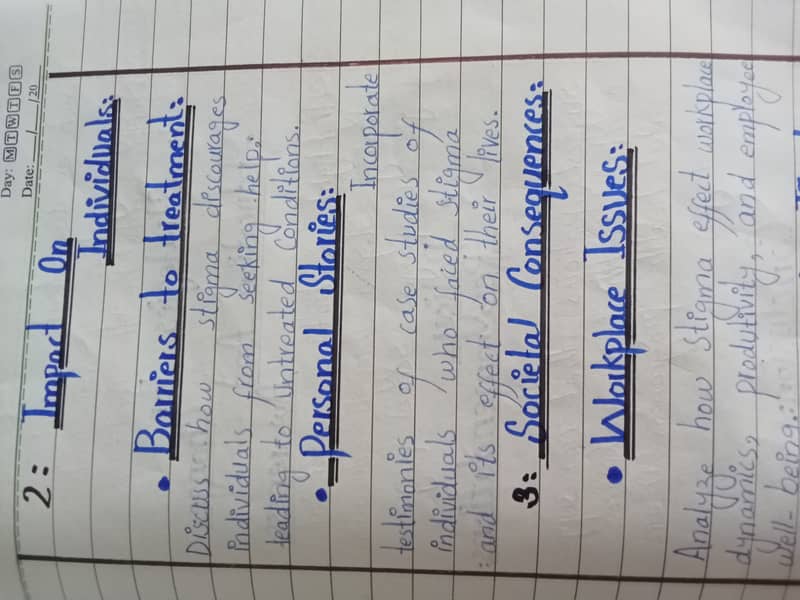 Day: M T W T F S
Date: __/__/20
2: Impact On
Individuals:
• Barriers to treatment:
Discuss how stigma discourages
individuals from seeking help,
leading to untreated conditions.
• Personal Stories:
Incorporate
testimonies of case studies of
individuals who faced stigma
and its effect on their lives.
3: Societal Consequences:
• Workplace Issues:
Analyze how stigma effect workplace
dynamics, produtivity, and employee
well-being.